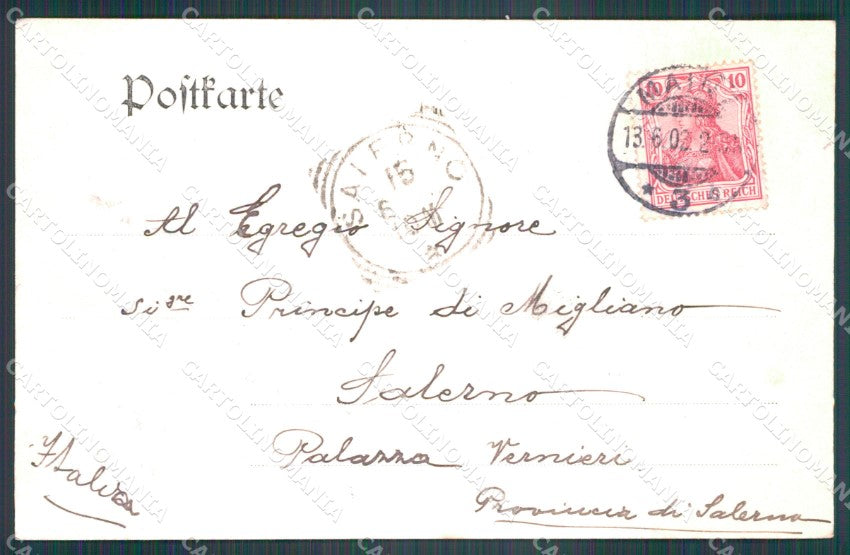 Postkarte
10
DEUTSCHES REICH
MAIN
13.6.02
3
SALERNO
15
6
Al Egregio Signore
si re Principe di Migliano
Salerno
Palazza Vernieri
Italia
Provincia di Salerno
CARTOLINOMANIA